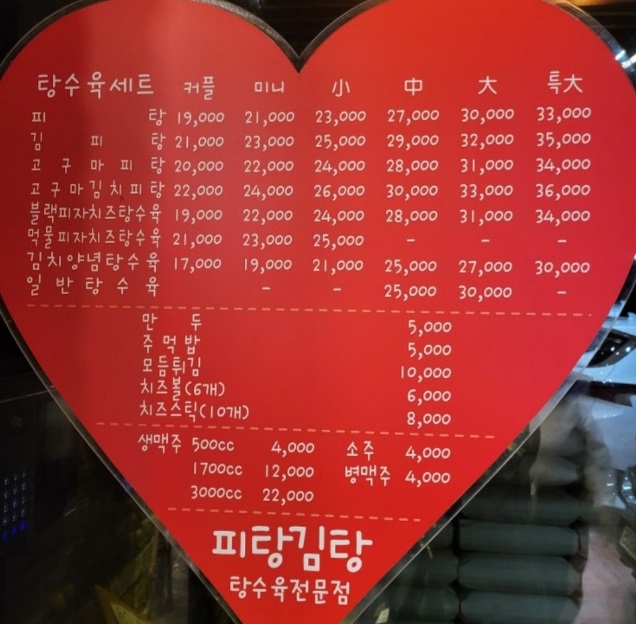 탕수육세트 커플 미니 小 中 大 특大
피탕 19,000 21,000 23,000 27,000 30,000 33,000
김피탕 21,000 23,000 25,000 29,000 32,000 35,000
고구마피탕 20,000 22,000 24,000 28,000 31,000 34,000
고구마김치피탕 22,000 24,000 26,000 30,000 33,000 36,000
블랙피자치즈탕수육 19,000 22,000 24,000 28,000 31,000 34,000
먹물피자치즈탕수육 21,000 23,000 25,000 - - -
김치양념탕수육 17,000 19,000 21,000 25,000 27,000 30,000
일반탕수육 - - 25,000 30,000 -
만두 5,000
주먹밥 5,000
모듬튀김 10,000
치즈볼(6개) 6,000
치즈스틱(10개) 8,000
생맥주 500cc 4,000 소주 4,000
1700cc 12,000 병맥주 4,000
3000cc 22,000
피탕김탕
탕수육전문점